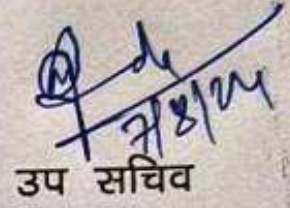 7/8/24
उप सचिव